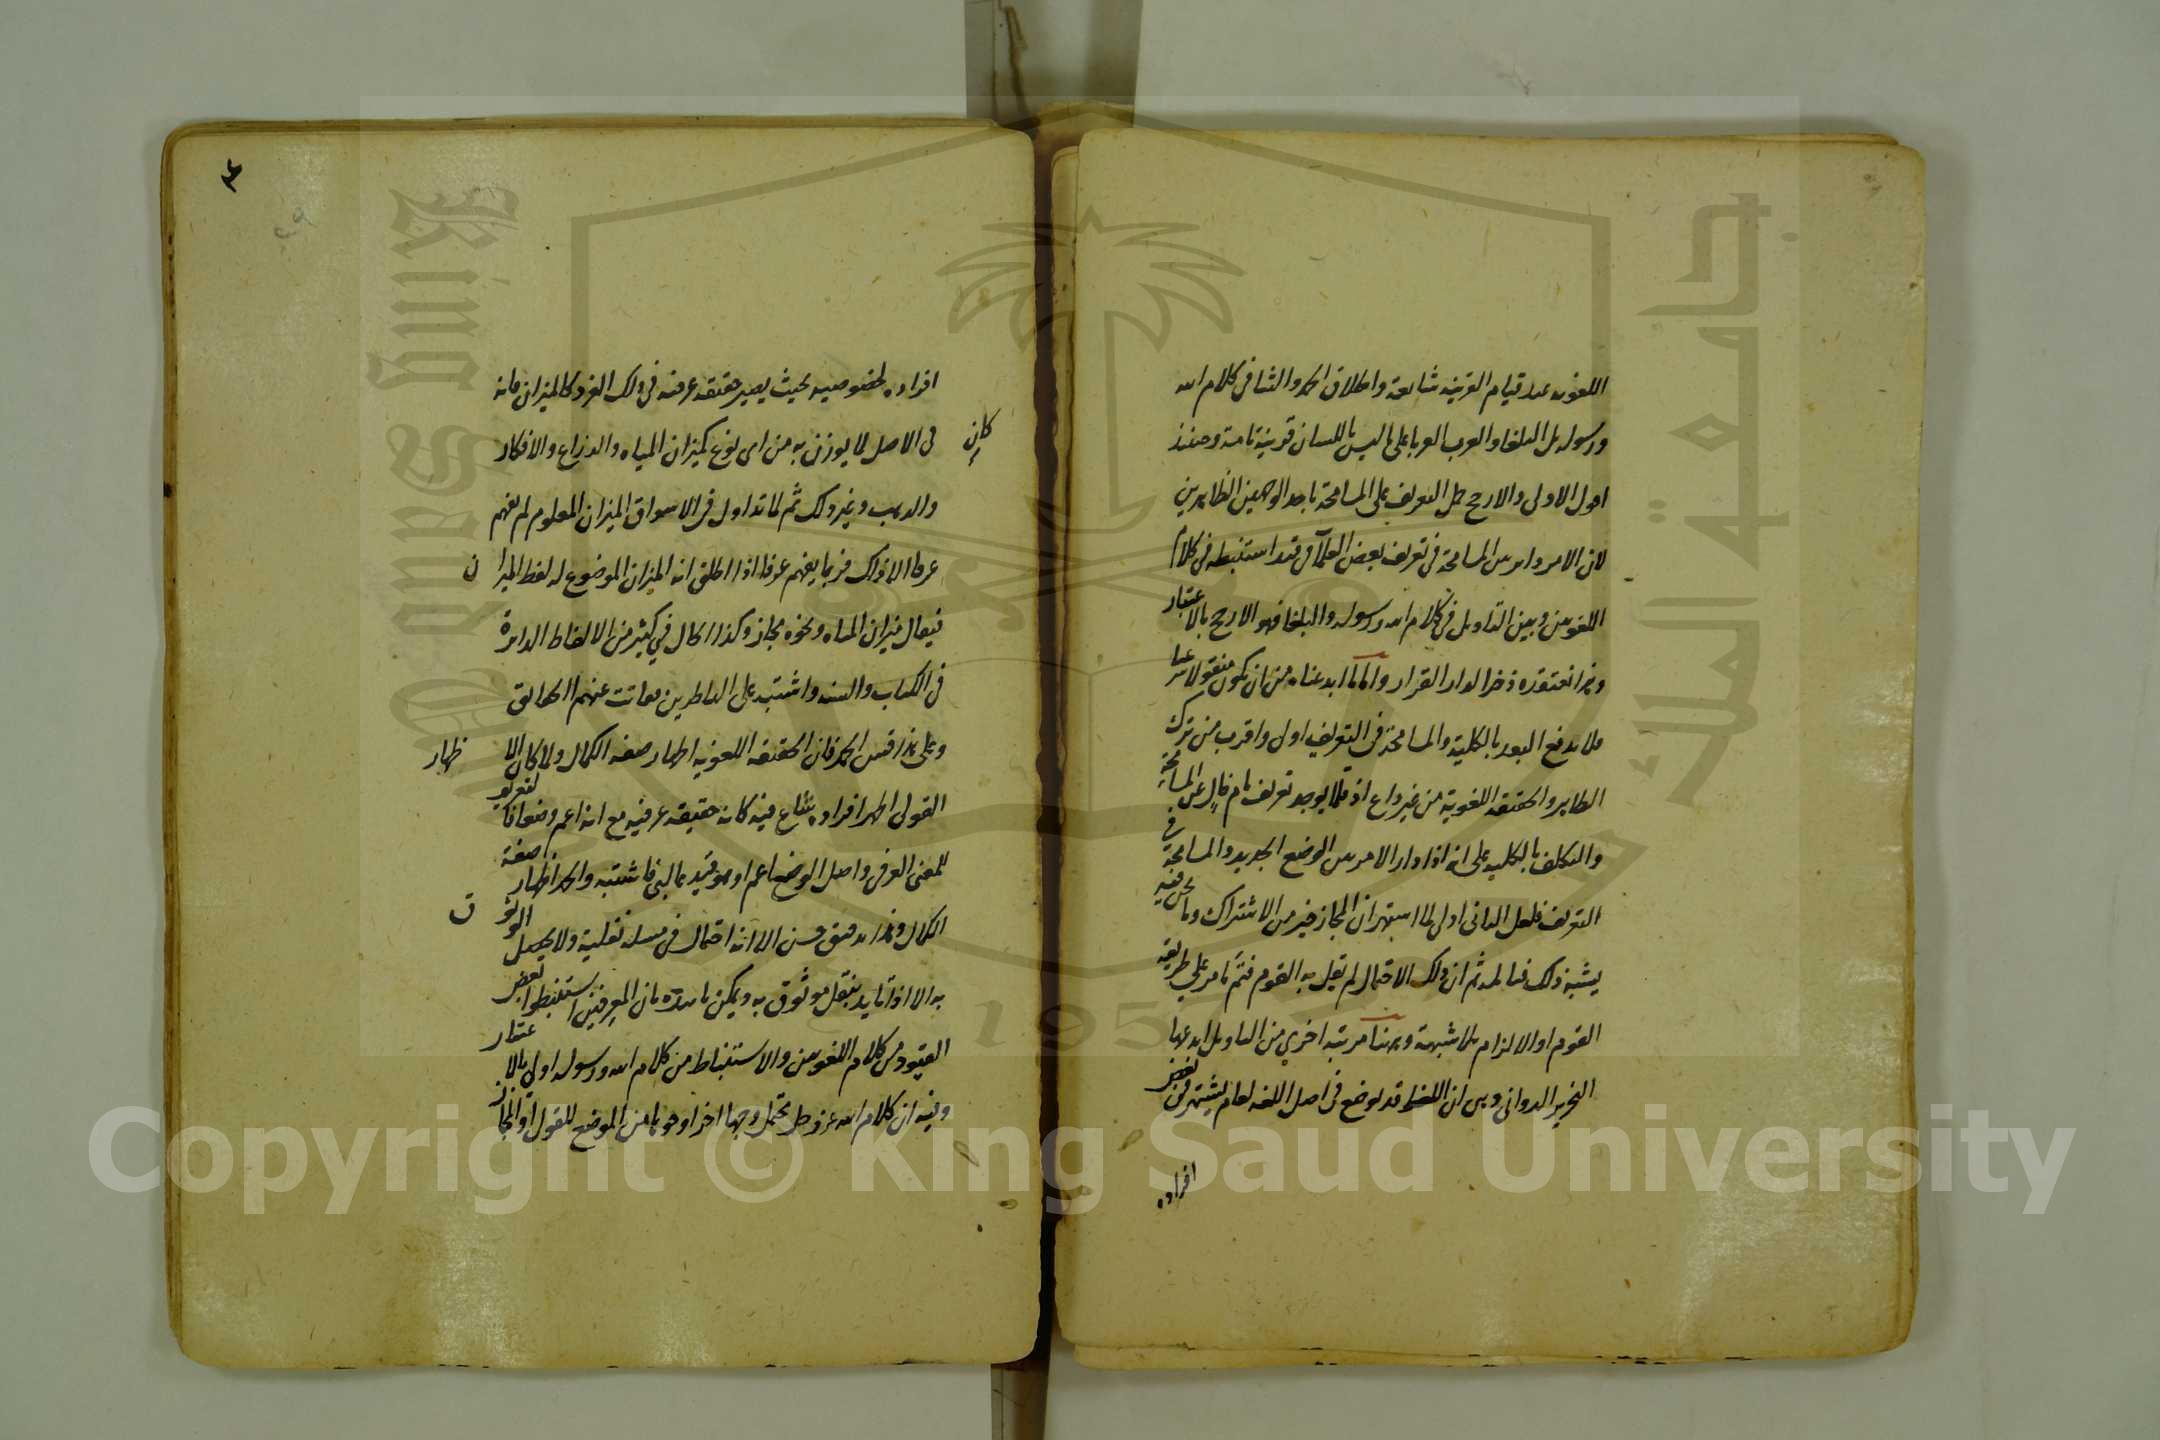 اللغويه عند قيام القرينه شايعة واطلاق الحمد والثنا في كلام الله
ورسوله بل البلغا والعرب العربا على ما ليس باللسان قرينة تامة وحينئذ
اقول الاولى والارجح حمل التعريف على المسامحة باحد الوجهين الظاهرين
لان الامر دار بين المسامحة في تعريف بعض العلماء في قيد استنبطه في كلام
اللغويين وبين التاويل في كلام الله ورسوله والبلغا فهو الارجح بالاعتبار
وهذا نعتقده ذخرا لدار القرار واما ما ابدعناه من ان يكون منقولا شرعيا
فلا يدفع البعد بالكلية والمسامحة في التعريف اولى واقرب من ترك
الظاهر والحقيقه اللغوية من غير داع اذ قلما يوجد تعريف تام خال عن المسامحة
والتكلف بالكليه على انه اذا دار الامر بين الوضع الجديد والمسامحة في
التعريف فلعل الثاني اولى لما اشتهر ان المجاز خير من الاشتراك وما نحن فيه
يشبه ذلك ثم ان ذلك الاحتمال لم يقل به القوم فتم ما مر على طريقة
القوم او الالزام بلا شبهة وههنا مرتبه اخري من التاويل ابدعها
النحرير الدواني وهي ان اللفظ قد يوضع في اصل اللغه لعام يشتهر في بعض
افراده
٣
٢٩
افراده لخصوصيه بحيث يصير حقيقه عرفيه في ذلك الفرد كالميزان فانه
كان في الاصل لما يوزن به من اى نوع كميزان المياه والذراع والافكار
والذهب وغير ذلك ثم لما تداول في الاسواق الميزان المعلوم لم يفهم
عرفا الا ذلك فربما يفهم عرفا اذا اطلق انه الميزان الموضوع له لفظ الميزان
فيقال ميزان المياه ونحوه مجاز وكذا الحال في كثير من الالفاظ الدائرة
في الكتاب والسنه واشتبه على الناظرين ففاتت عنهم الحقائق
وعلى هذا قس الحمد فان الحقيقه اللغويه اظهار صفه الكمال ولما كان الاظهار
القولي اظهر افراده شاع فيه كانه حقيقه عرفيه مع انه اعم وضعا
للمعنى العرفي واصل الوضع اعم او هو قيد فاشتبه والحمد اظهار صفة
الكمال وهذا تدقيق حسن الا انه احتمال في مسئلة نقلية ولا يحصل الوثوق
به الا اذا تايد بنقل موثوق به ويمكن تاييده بان المعرفين استنبطوا بعض
القيود من كلام اللغويين والاستنباط من كلام الله ورسوله اولى بالاعتبار
وفيه ان كلام الله عز وجل يحتمل وجها اخر او هو ما من الموضع للقول او المجاز